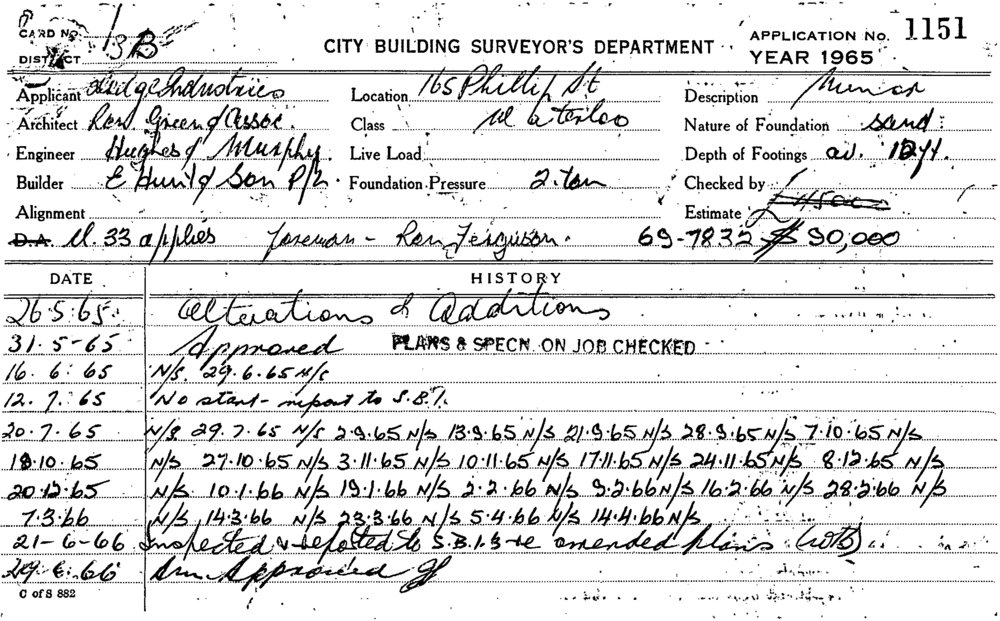 CARD NO.
DISTRICT 13B
CITY BUILDING SURVEYOR'S DEPARTMENT
APPLICATION No. 1151
YEAR 1965
Applicant Industries
Location 165 Phillip St
Description
Architect Ron. Green & Assoc.
Class Waterloo
Nature of Foundation sand
Engineer Hughes & Murphy.
Live Load
Depth of Footings av. 12ft.
Builder E Hunt & Son P/L.
Foundation Pressure 2. ton
Checked by
Alignment
Estimate £45000
D.A. Cl. 33 applies Foreman - Ron Ferguson. 69-7832 $ 90,000
DATE HISTORY
26.5.65. Alterations & Additions
31.5-65 Approved PLANS & SPECN. ON JOB CHECKED
16.6.65 N/S. 29.6.65 N/S
12.7.65 No start - report to S.B.I.
20.7.65 N/S 29.7.65 N/S 2.9.65 N/S 13.9.65 N/S 21.9.65 N/S 28.9.65 N/S 7.10.65 N/S
18.10.65 N/S 27.10.65 N/S 3.11.65 N/S 10.11.65 N/S 17.11.65 N/S 24.11.65 N/S 8.12.65 N/S
20.12.65 N/S 10.1.66 N/S 19.1.66 N/S 2.2.66 N/S 9.2.66 N/S 16.2.66 N/S 28.2.66 N/S
7.3.66 N/S 14.3.66 N/S 23.3.66 N/S 5.4.66 N/S 14.4.66 N/S
21-6-66 Inspected & reported to S.B.I. re amended plans
29.6.66 Am Approved
C of S 882